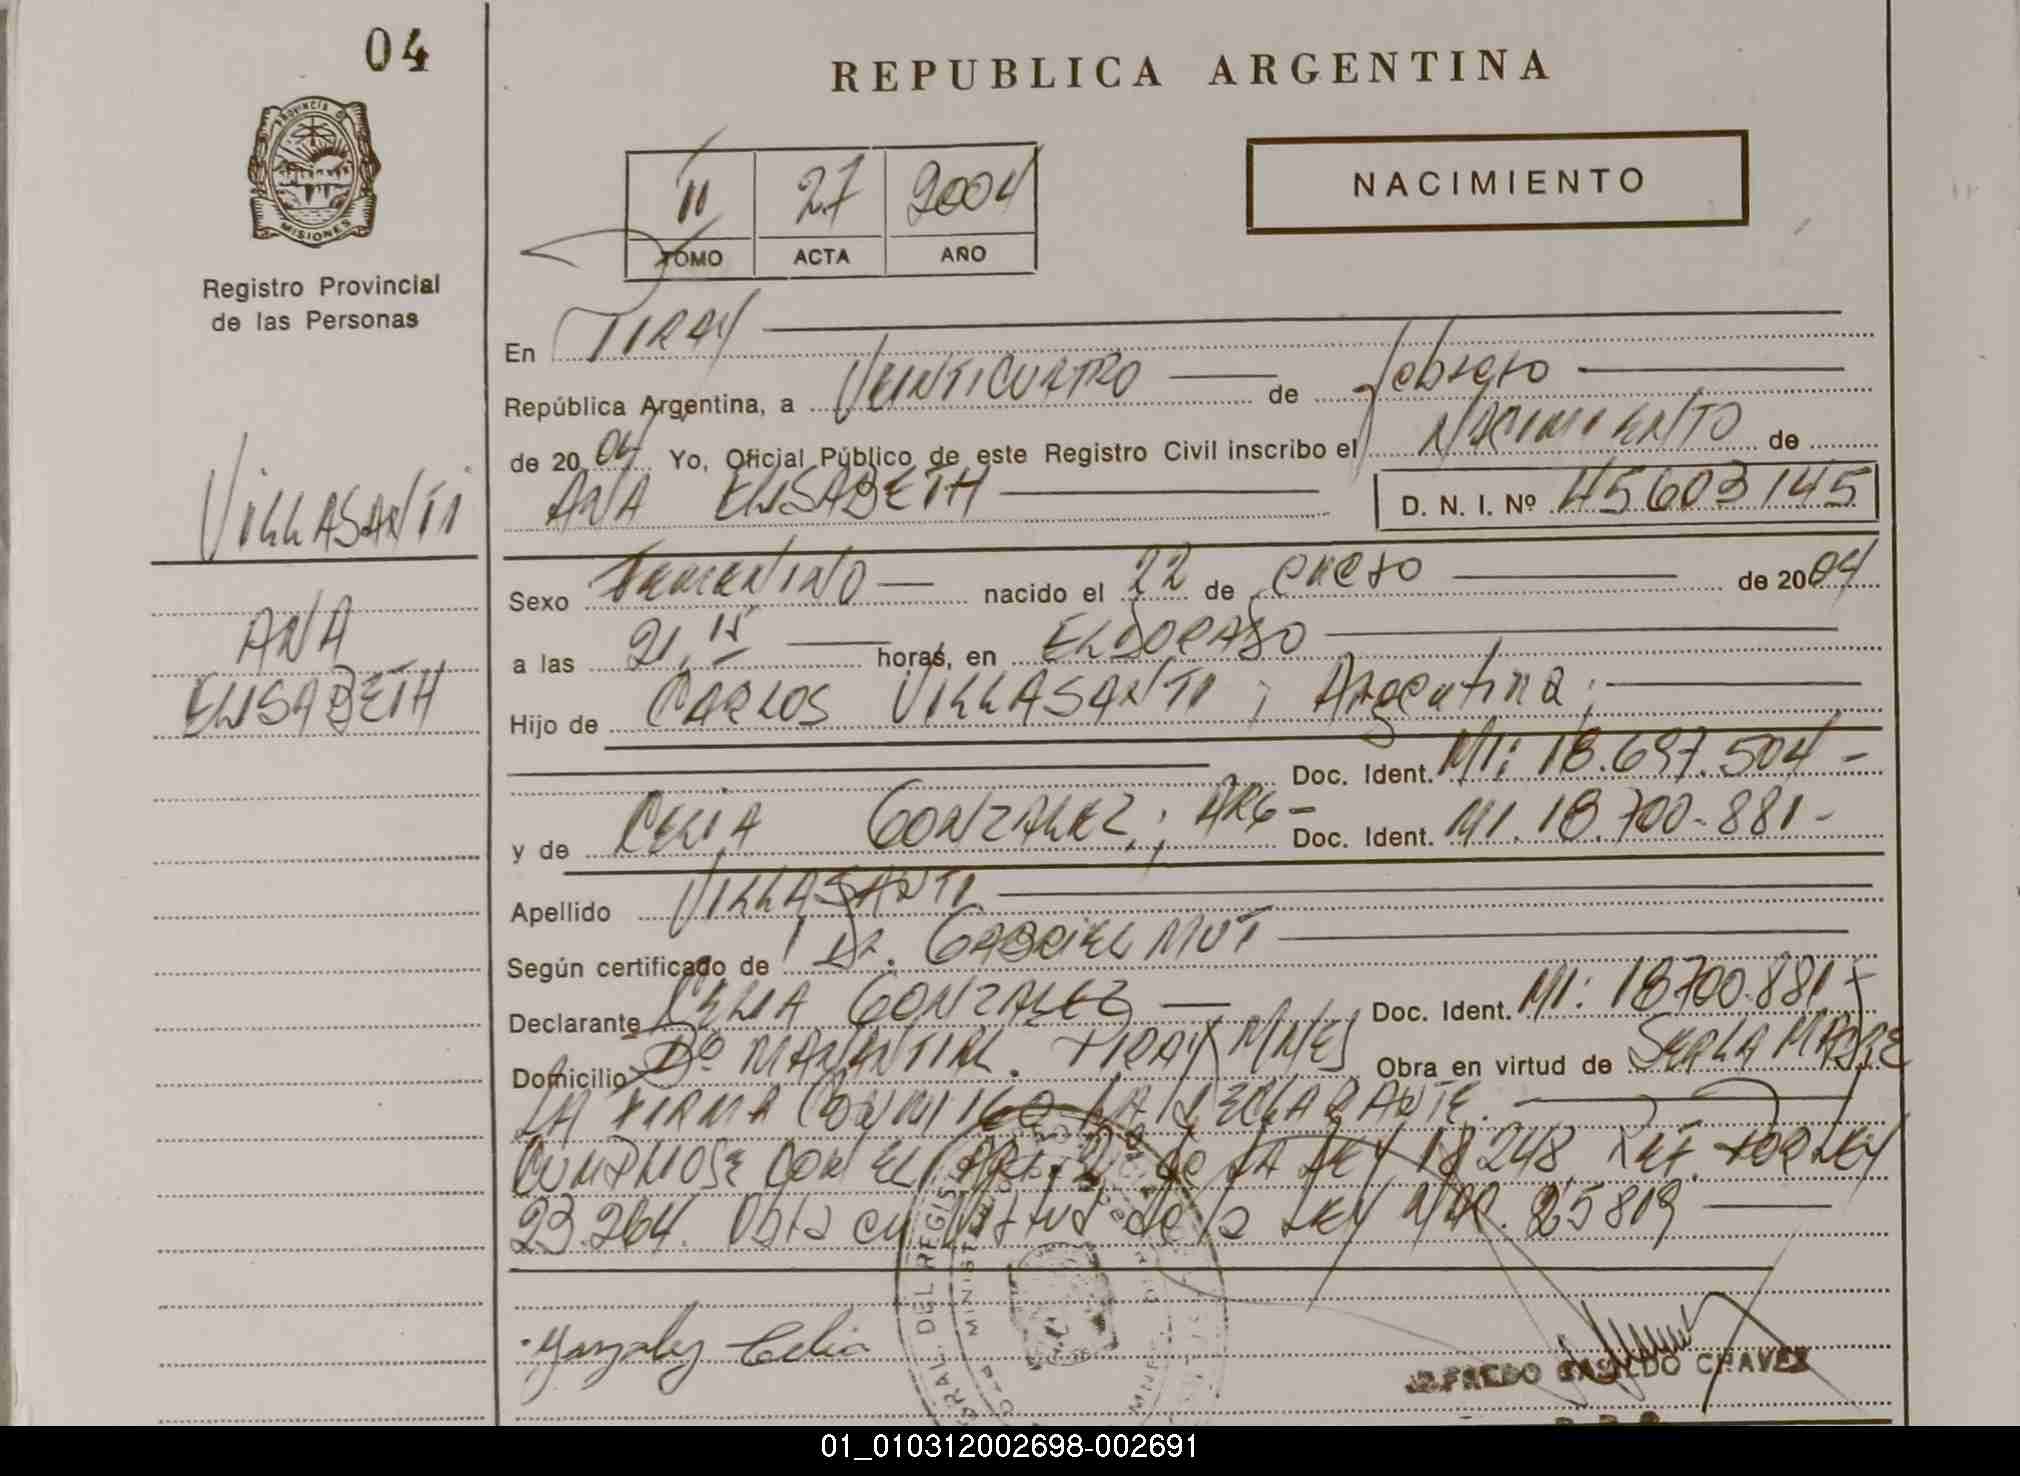 04
REPUBLICA ARGENTINA
PROVINCIA DE
MISIONES
Registro Provincial
de las Personas
NACIMIENTO
II 27 2004
TOMO ACTA AÑO
En PIRAY
República Argentina, a VEINTICUATRO de febrero
de 2004 Yo, Oficial Público de este Registro Civil inscribo el NACIMIENTO de
ANA ELISABETH D. N. I. Nº 45603145
VILLASANTI
ANA
ELISABETH
Sexo FEMENINO nacido el 22 de enero de 2004
a las 21,15 horas, en ELDORADO
Hijo de CARLOS VILLASANTI; Argentina;
Doc. Ident. MI: 18.697.504-
y de CELIA GONZALEZ; ARG- Doc. Ident. MI. 18.700.881-
Apellido VILLASANTI
Según certificado de Dr. GABRIEL MUT
Declarante CELIA GONZALEZ Doc. Ident. MI: 18700.881-
Domicilio Bº MANANTIAL. PIRAY MNES Obra en virtud de SER LA MADRE
LA FIRMA CONMIGO LA DECLARANTE.
CUMPLIOSE CON EL ART. 2 de LA LEY 18248 REF. POR LEY
23.264. Obra en virtud de la LEY NRO. 25819
Gonzalez Celia
ALFREDO CASILDO CHAVEZ
01_010312002698-002691